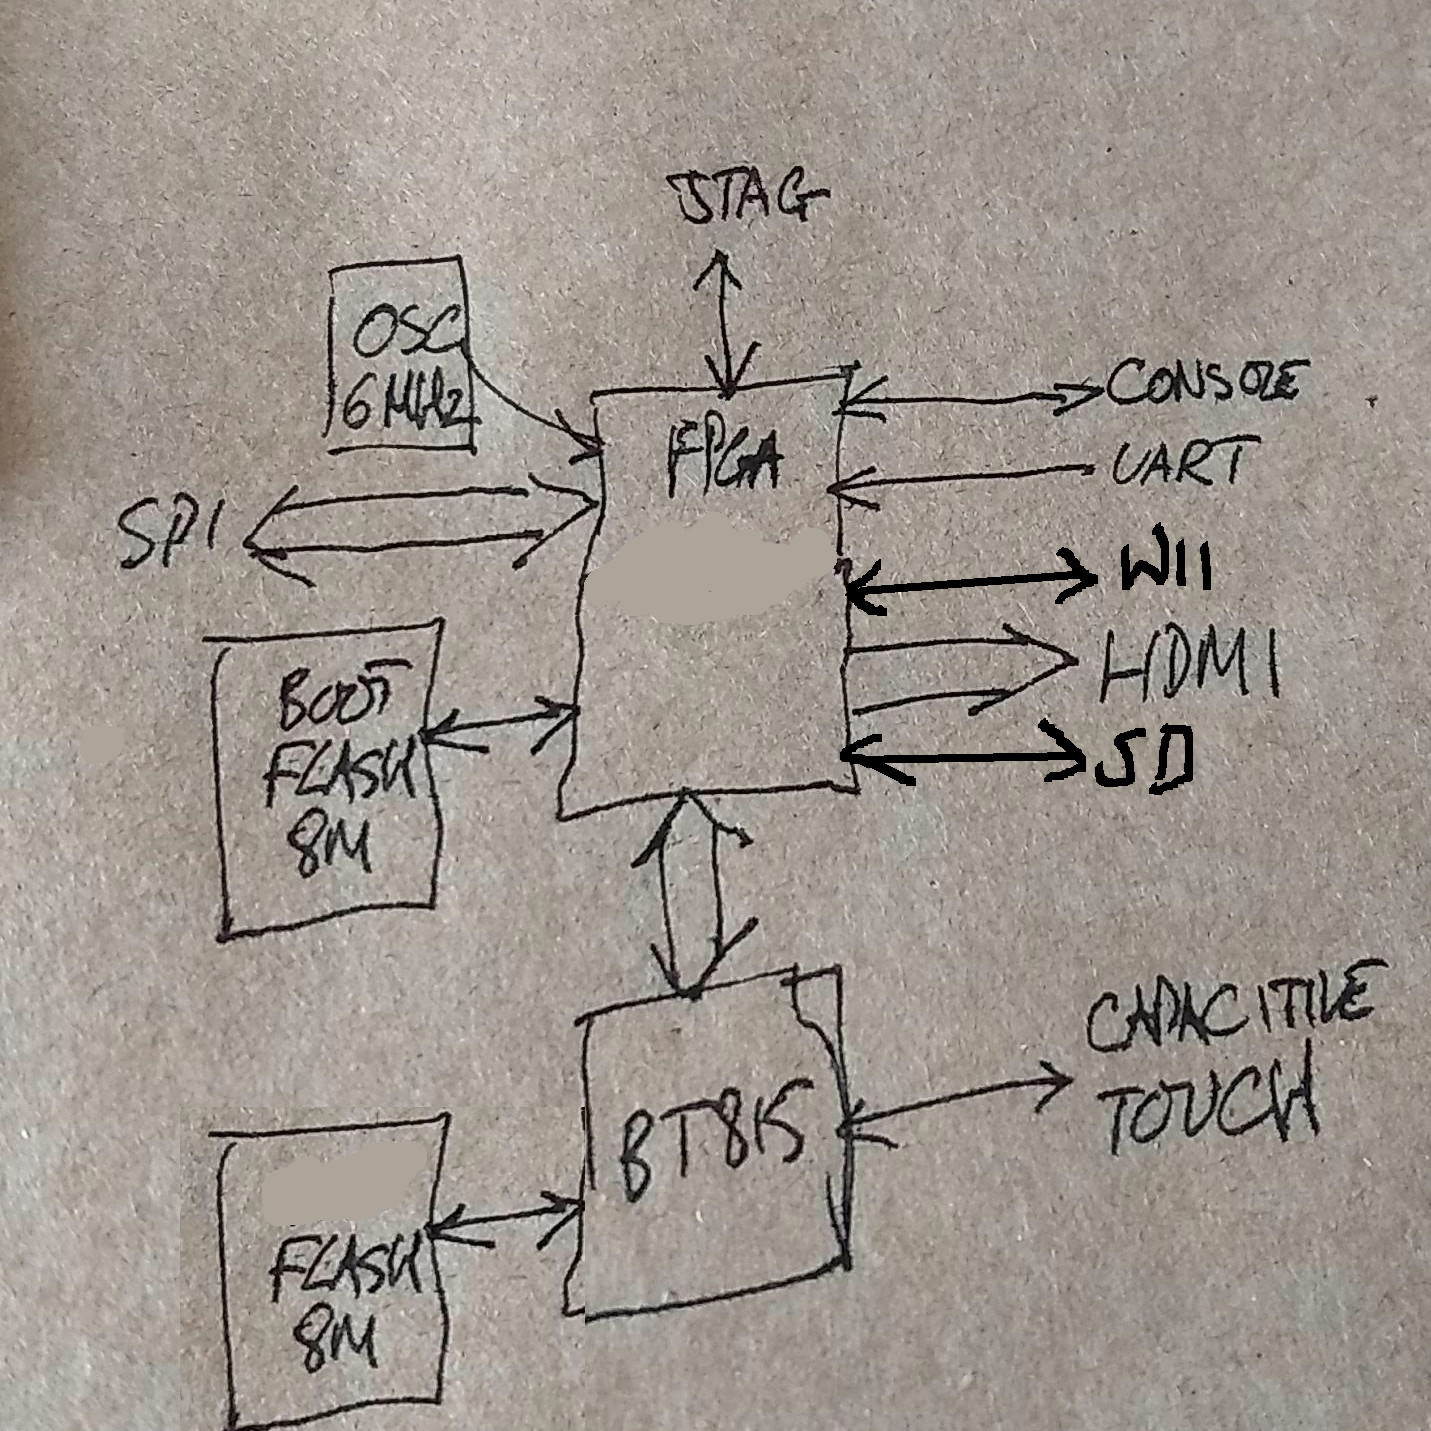 JTAG
OSC
6MHz
FPGA
CONSOLE
UART
SPI
WII
HDMI
SD
BOOT
FLASH
8M
BT815
CAPACITIVE
TOUCH
FLASH
8M